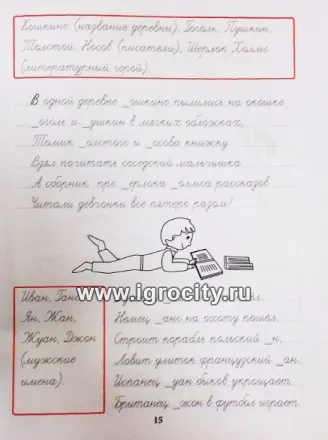 Кошкино (название деревни), Гоголь, Пушкин,
Толстой, Носов (писатели), Шерлок Холмс
(литературный герой).
В одной деревне _ошкино пылились на окошке
_оголь и _ушкин в мягких обложках,
Томик _олстого и _осова книжку
Взял почитать соседский мальчишка.
А сборник про _ерлока _олмса рассказов
Читали девчонки все пятеро разом!
www.igrocity.ru
Иван, Ганс,
Ян, Жан,
Жуан, Джон
(мужские
имена).
Немец _анс на охоту пошел.
Строит корабль польский _н.
Ловит улиток французский _ан.
Испанец _уан быков укрощает.
Британец _жон в футбол играет.
15